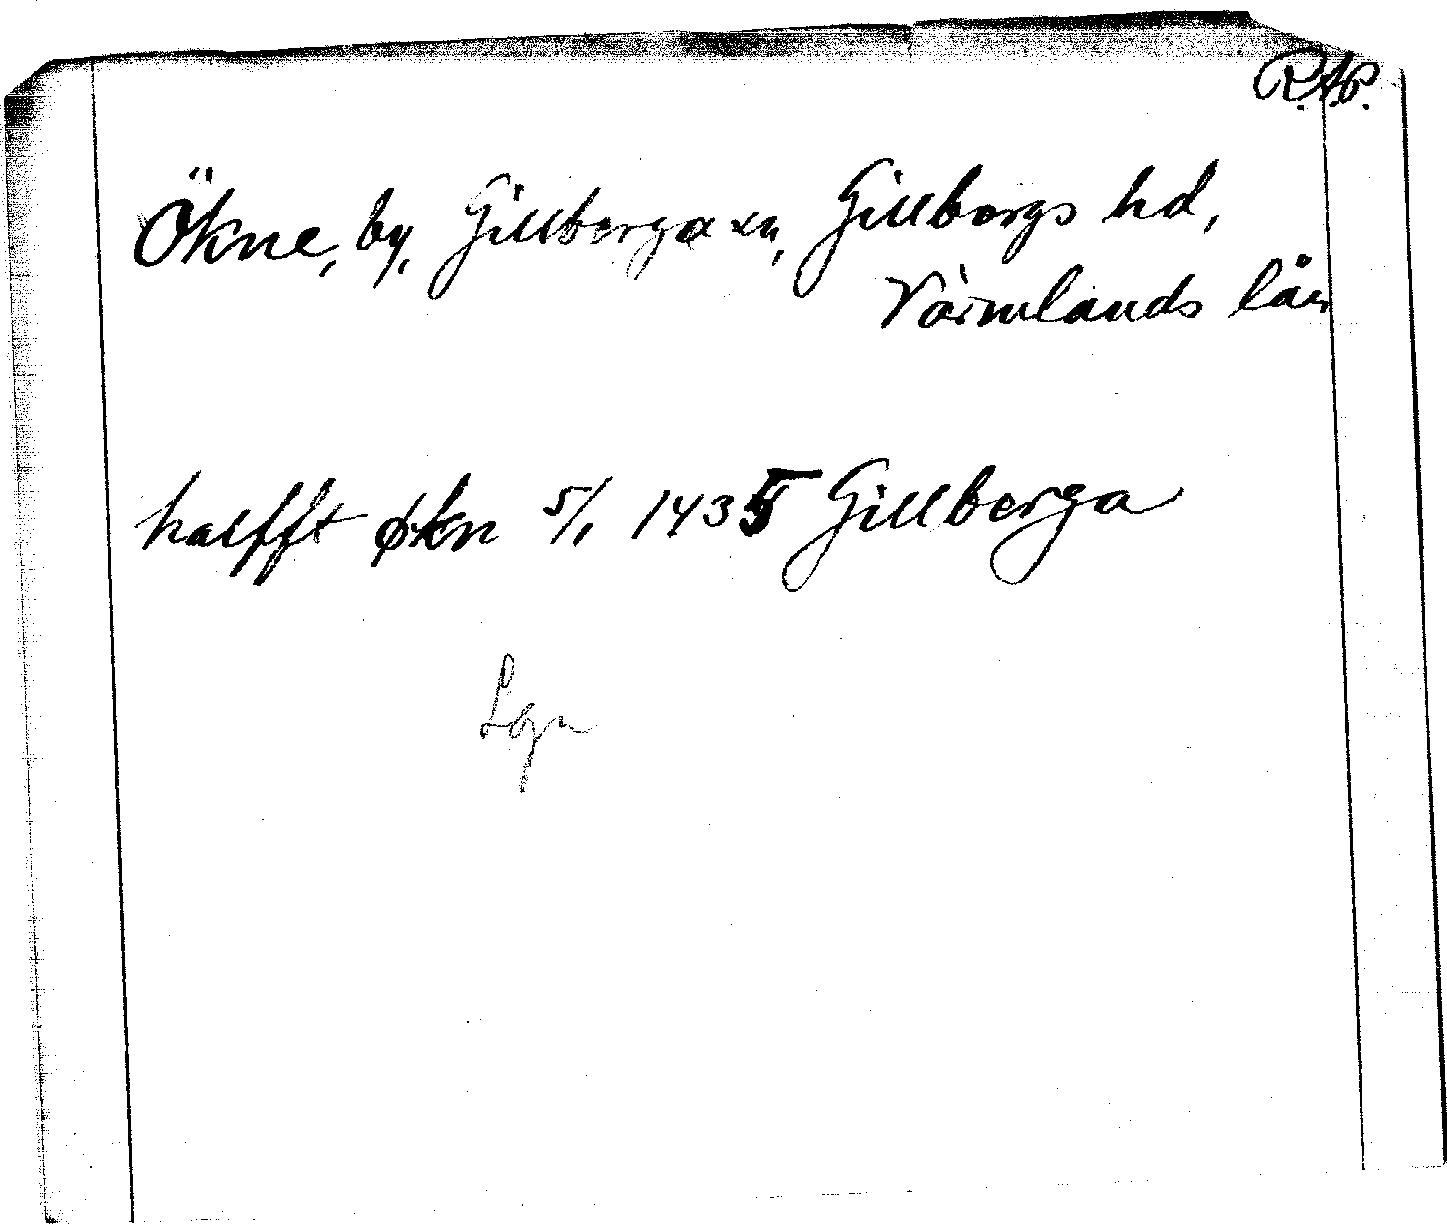 R.A.P.
Ökne, by, Gillberga sn, Gillbergs hd,
Värmlands län
halfft økn 5/1 1435 Gillberga
Lgn